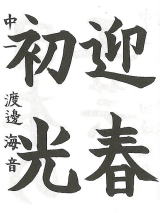 迎春
初光
中一 渡邉海音